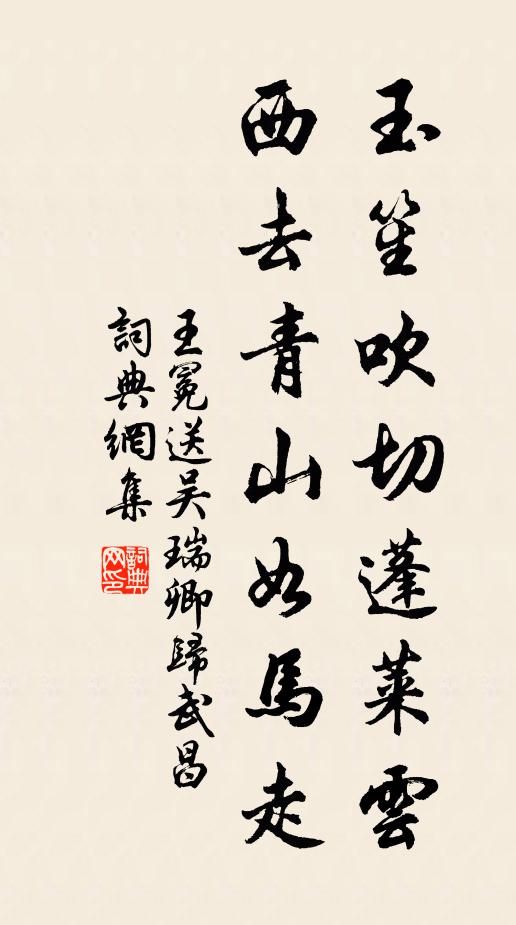 玉笙吹切蓬萊雲
西去青山如馬走
王冕送吴瑞卿歸武昌
詞典網集
詞典网印